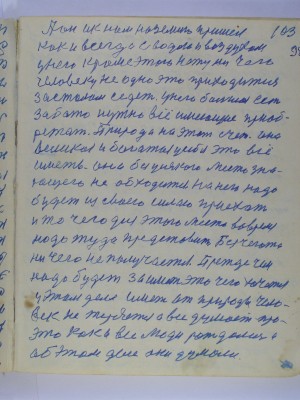 А он к нам на землю пришёл 103
как и всегда с водою и воздухом
у него кроме этого нету ни чего
человеку не одно это приходится
за столом сидеть. У него
за это нужно всё имеющие приоб-
ретать. Природа на этот счет она
великая и богатая у себя это всё
иметь. она без целого места зна-
ющего не обходится на него надо
будет из своего села приехат
и то чего для этого места вовремя
надо туда представит Без чего то
ни чего не получается. Прежде чем
надо будет заимет это чего хочется
у этом деле имет от природы чело-
век не теряется а все думает про-
это как и все люди
об этом деле они думали.